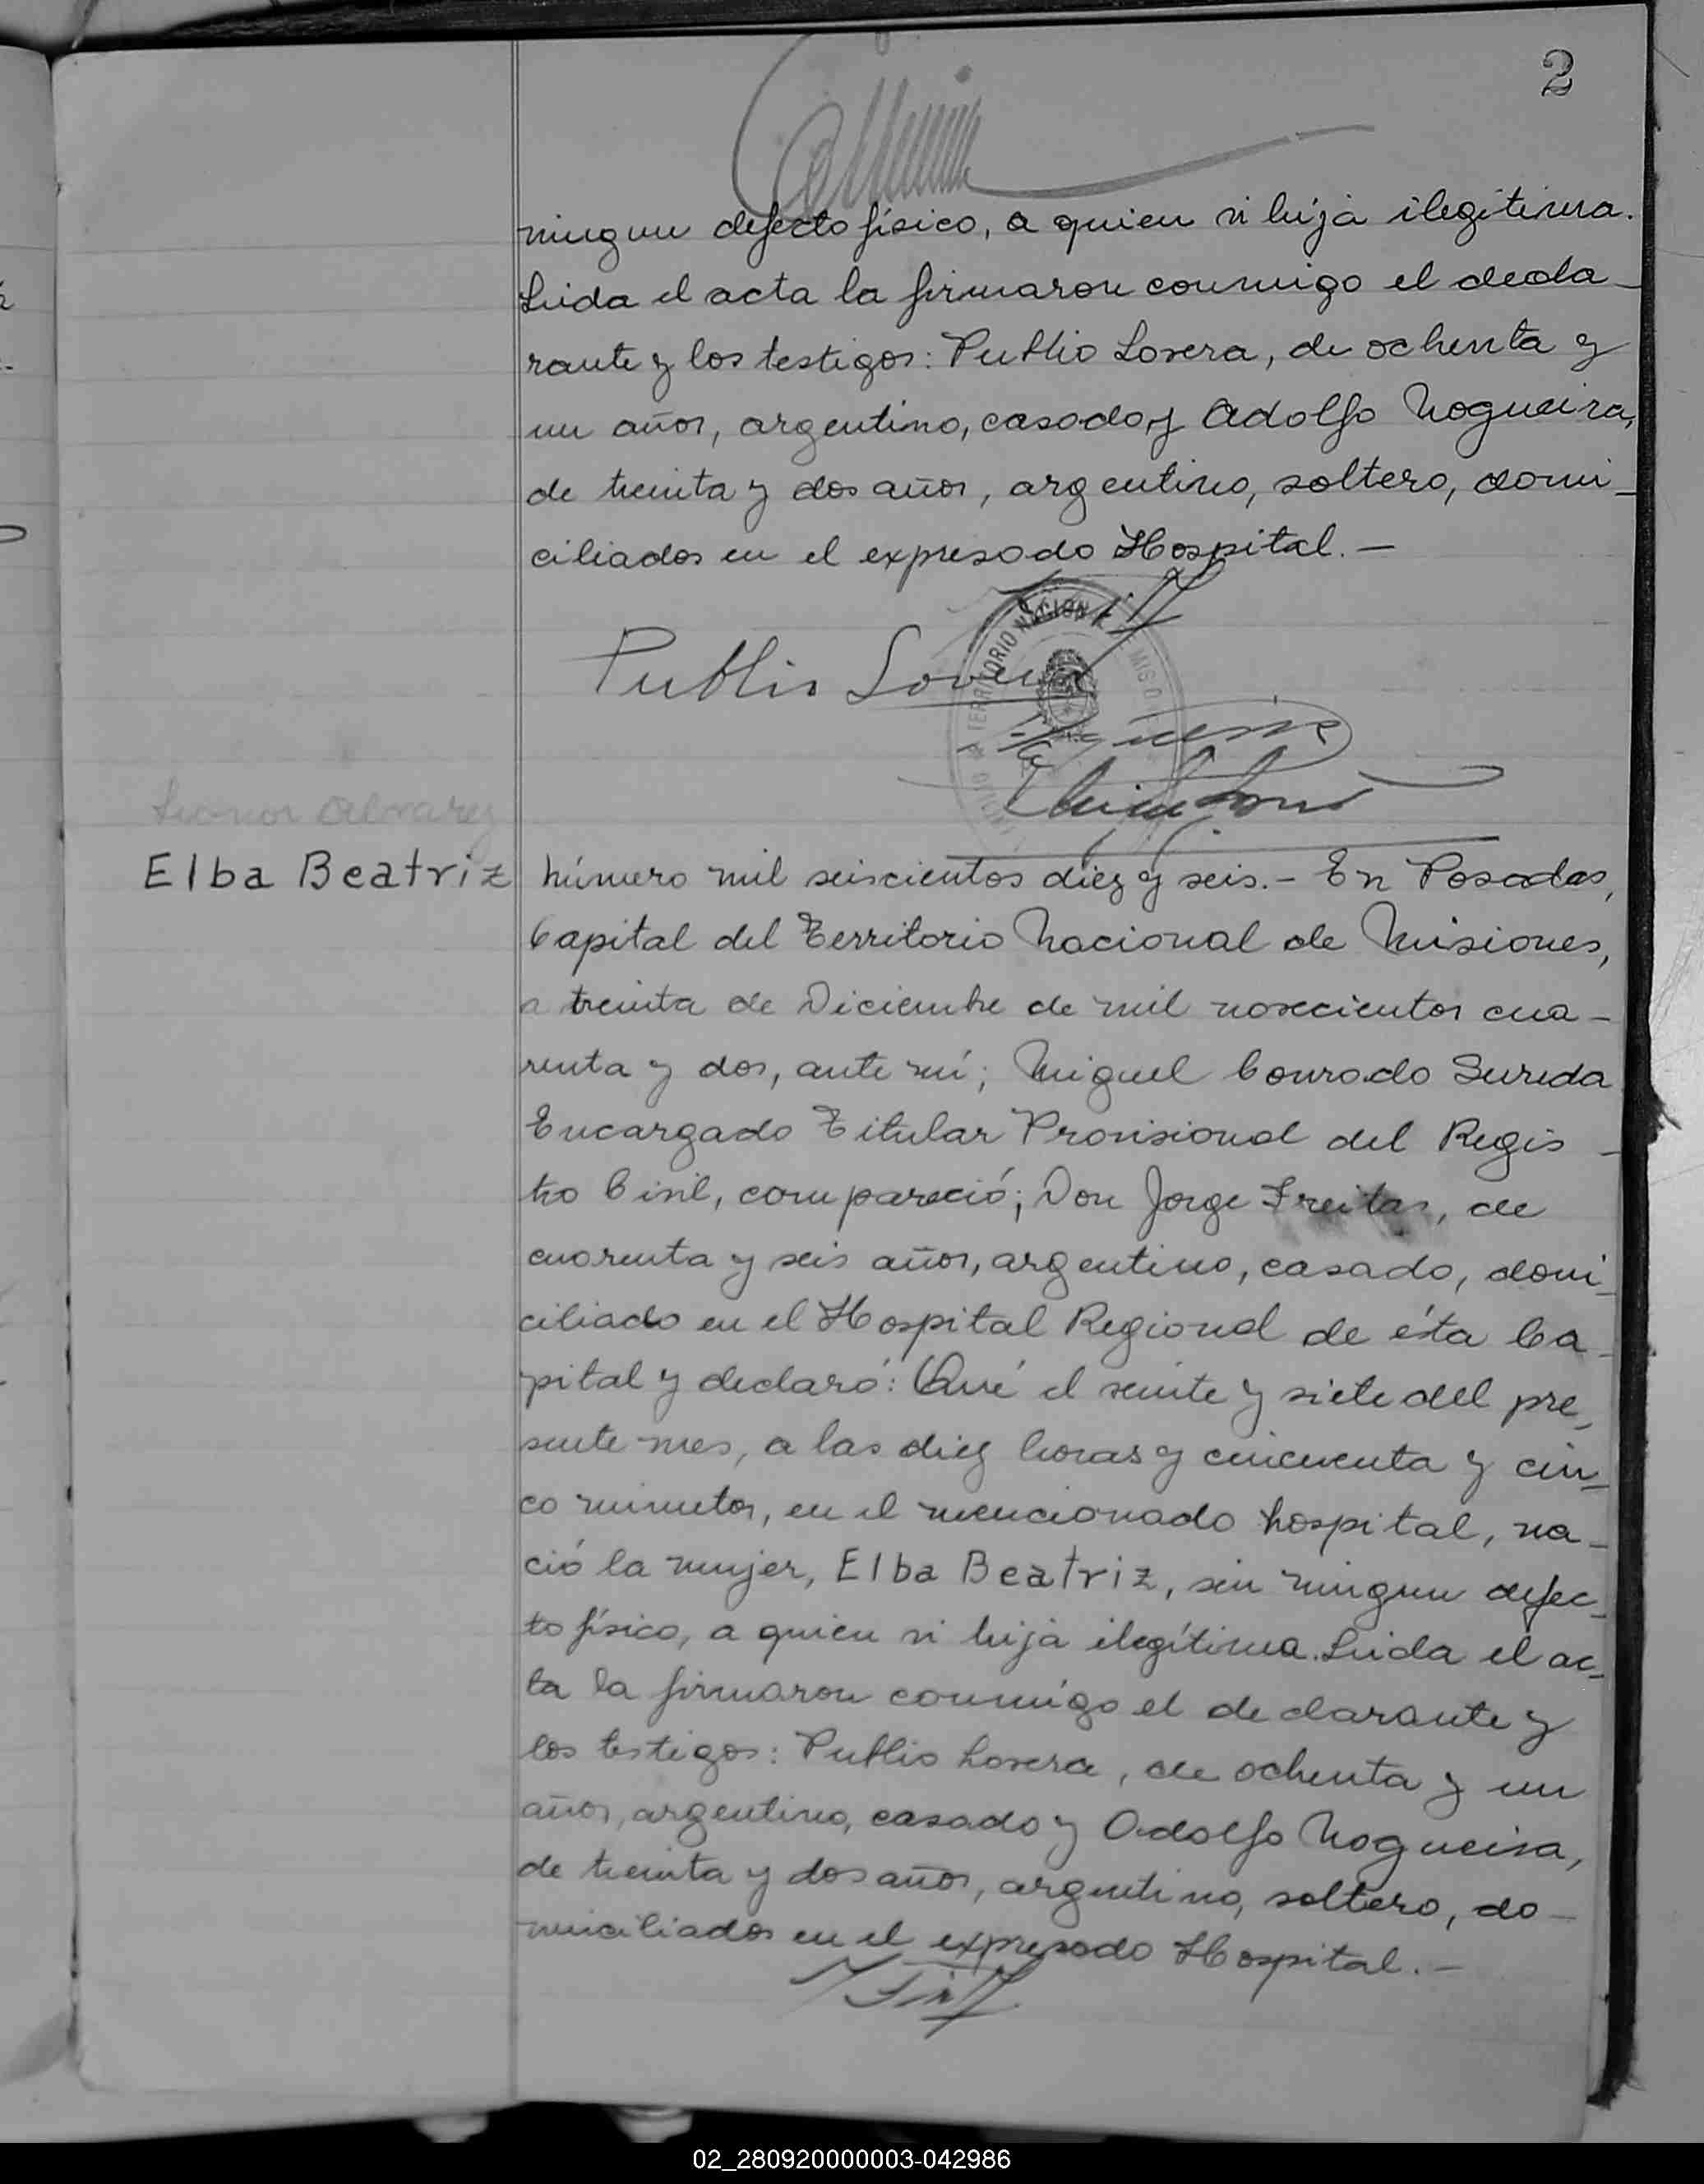 2
ningun defecto físico, a quien vi hija ilegítima.
Leida el acta la firmaron conmigo el decla-
rante y los testigos: Publio Lovera, de ochenta y
un años, argentino, casado, y Adolfo Nogueira,
de treinta y dos años, argentino, soltero, domi-
ciliados en el expresado Hospital.—
Publio Lovera
TERRITORIO NACIONAL DE MISIONES
Leonor Alvarez
Elba Beatriz
Número mil seiscientos diez y seis.- En Posadas,
Capital del Territorio Nacional de Misiones,
a treinta de Diciembre de mil novecientos cua-
renta y dos, ante mí; Miguel Conrado Sureda
Encargado Titular Provisional del Regis-
tro Civil, compareció; Don Jorge Freitas, de
cuarenta y seis años, argentino, casado, domi-
ciliado en el Hospital Regional de ésta Ca-
pital y declaró: Qué el veinte y siete del pre-
sente mes, a las diez horas y cincuenta y cin-
co minutos, en el mencionado hospital, na-
ció la mujer, Elba Beatriz, sin ningun defec-
to físico, a quien vi hija ilegítima. Leida el ac-
ta la firmaron conmigo el declarante y
los testigos: Publio Lovera, de ochenta y un
años, argentino, casado y Adolfo Nogueira,
de treinta y dos años, argentino, soltero, do-
miciliados en el expresado Hospital.—
02_280920000003-042986